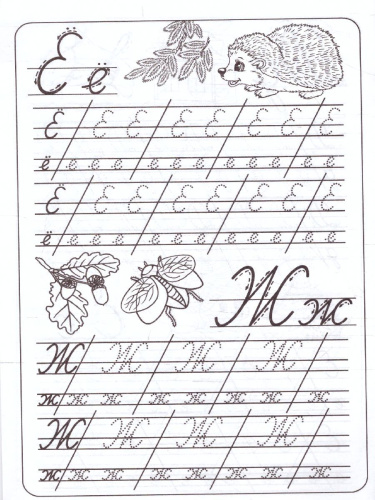 Ё ё
Ё Ё Ё Ё Ё Ё Ё Ё
ё ё ё ё ё ё ё ё ё ё ё
Ё Ё Ё Ё Ё Ё Ё Ё
ё ё ё ё ё ё ё ё ё ё ё
Ж ж
Ж Ж Ж Ж Ж
ж ж ж ж ж ж ж ж
Ж Ж Ж Ж Ж
ж ж ж ж ж ж ж ж